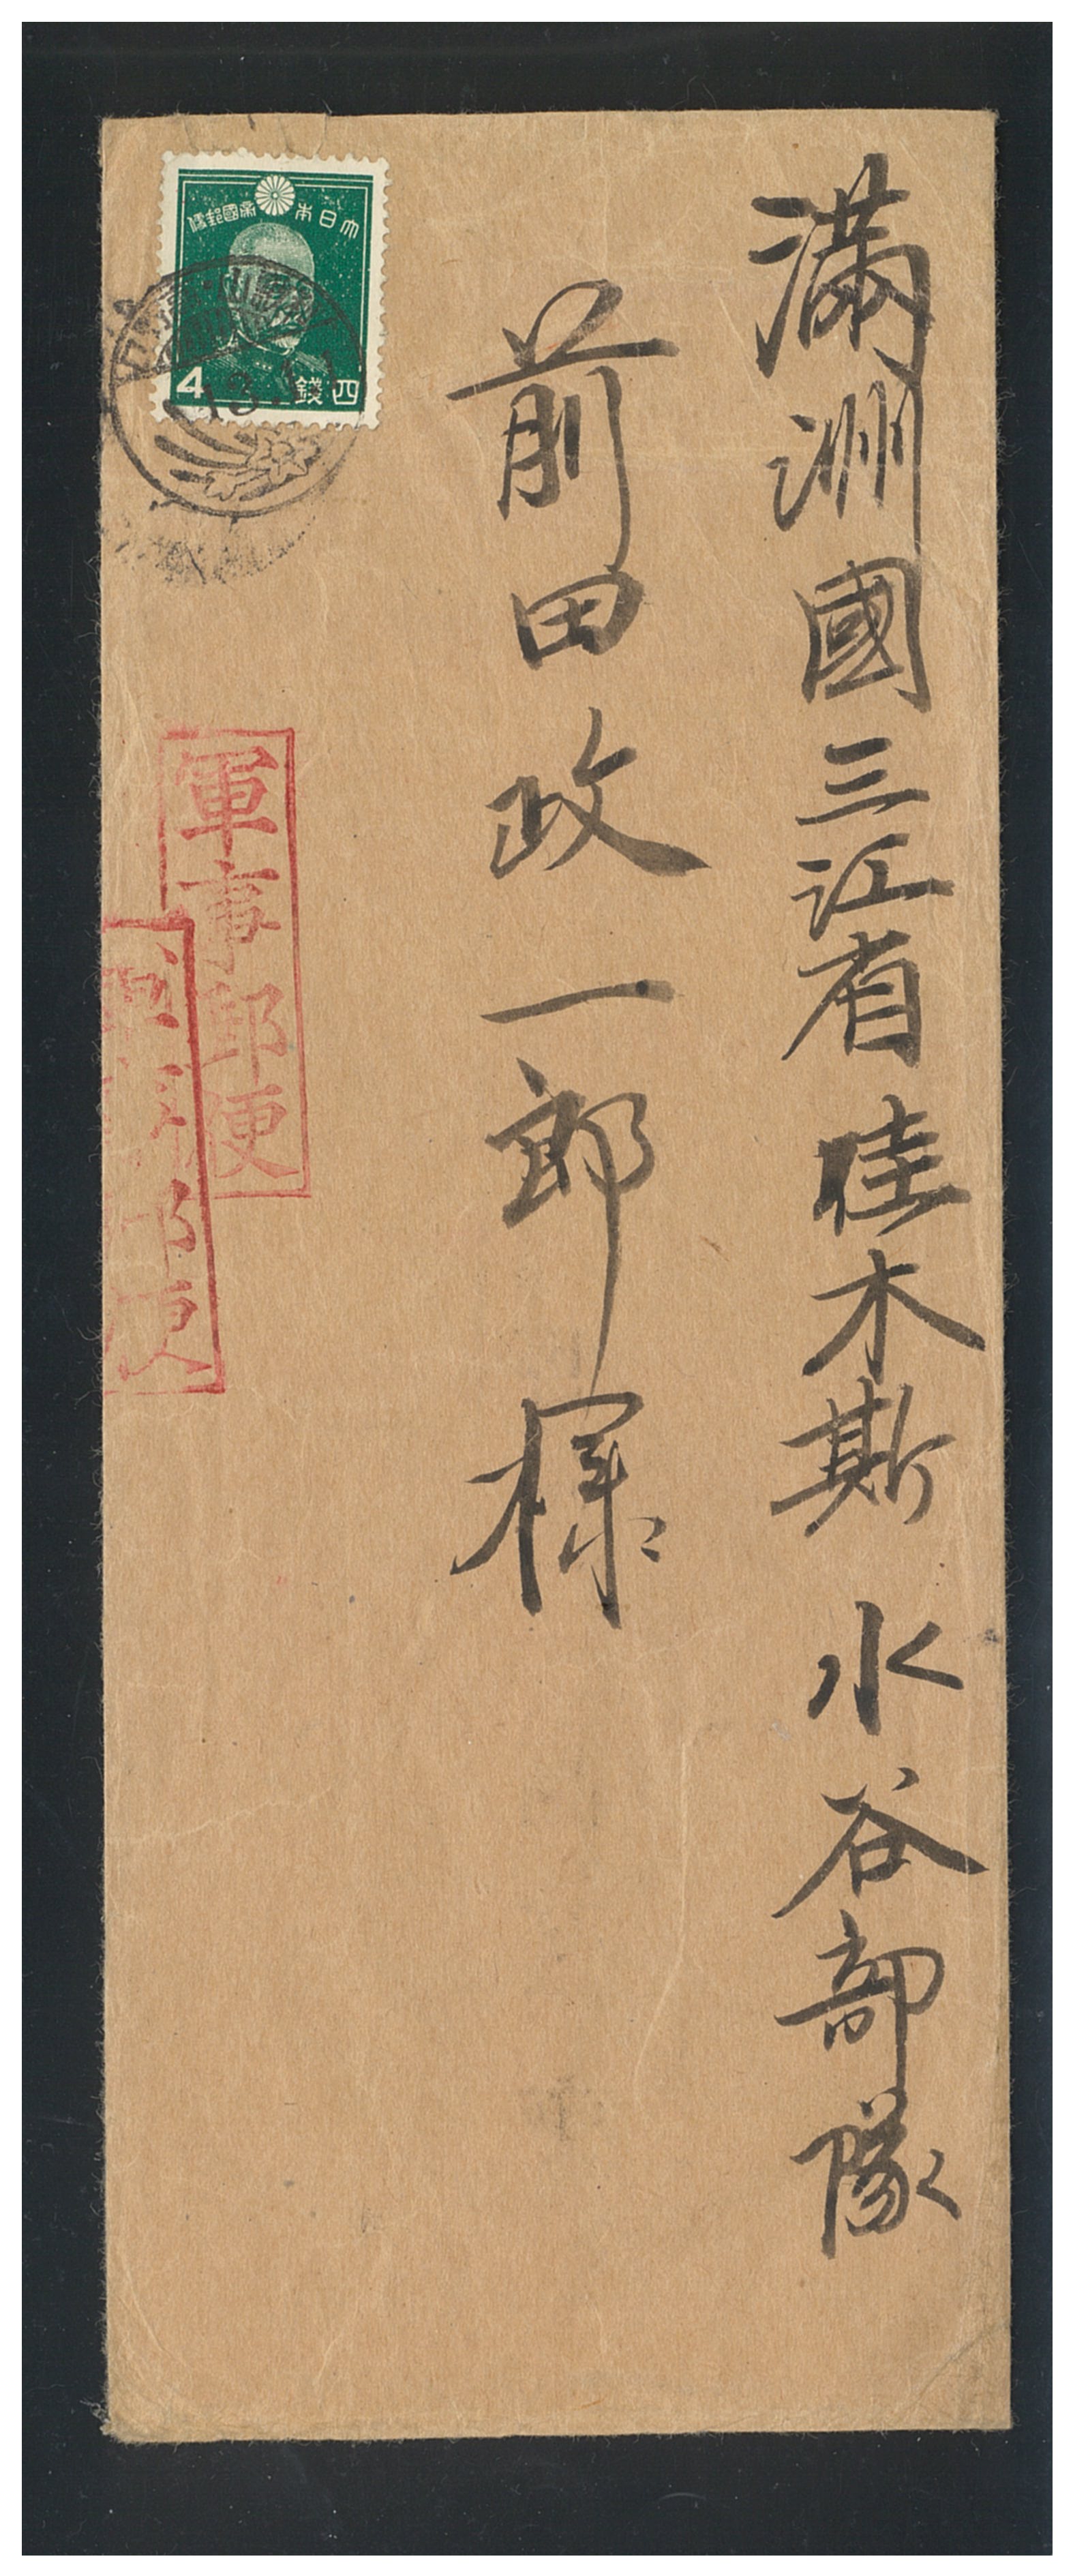 滿洲國三江省佳木斯 水谷部隊
前田政一郎様
大日本帝國郵便
4 錢四
軍事郵便